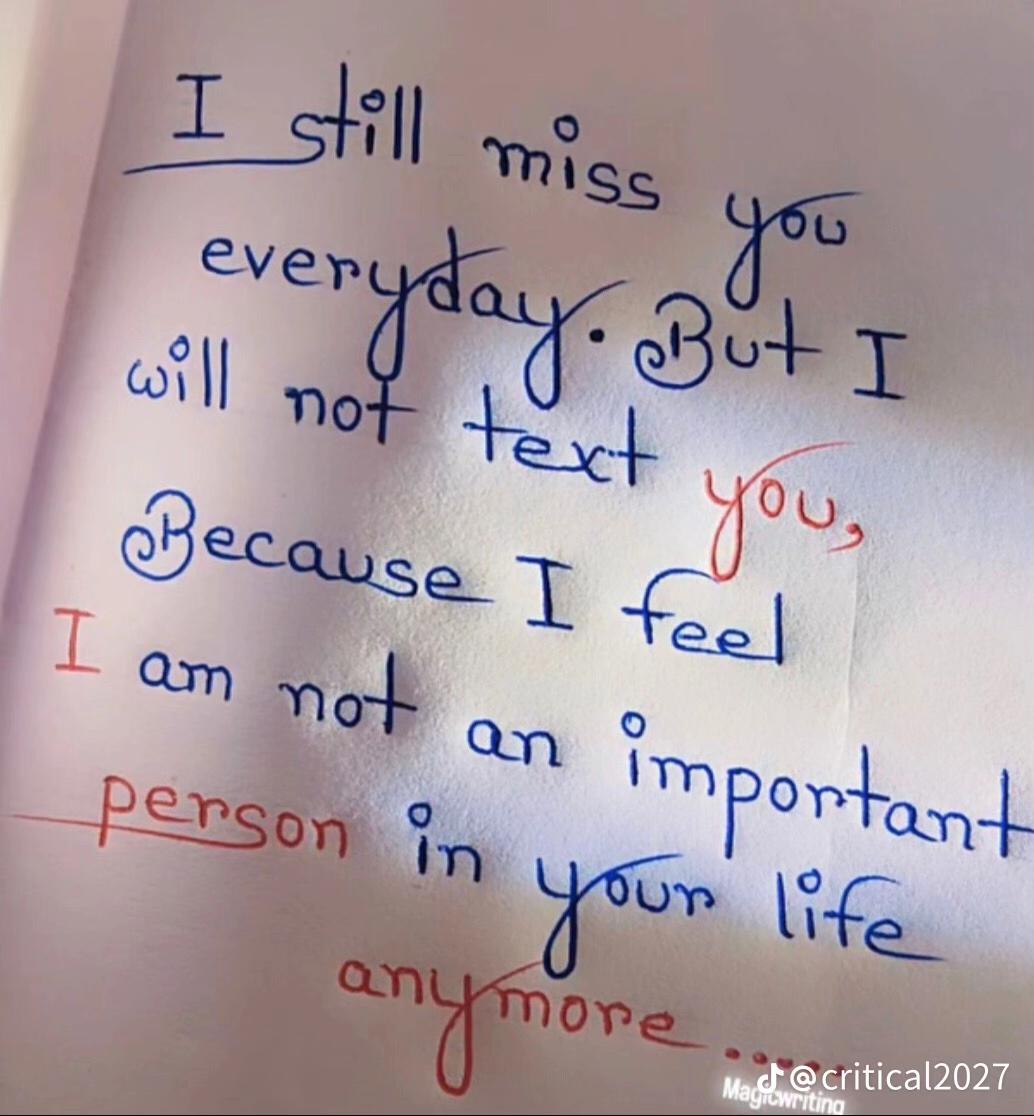 I still miss you
everyday. But I
will not text you,
Because I feel
I am not an important
person in your life
anymore......
@critical2027
Magicwriting